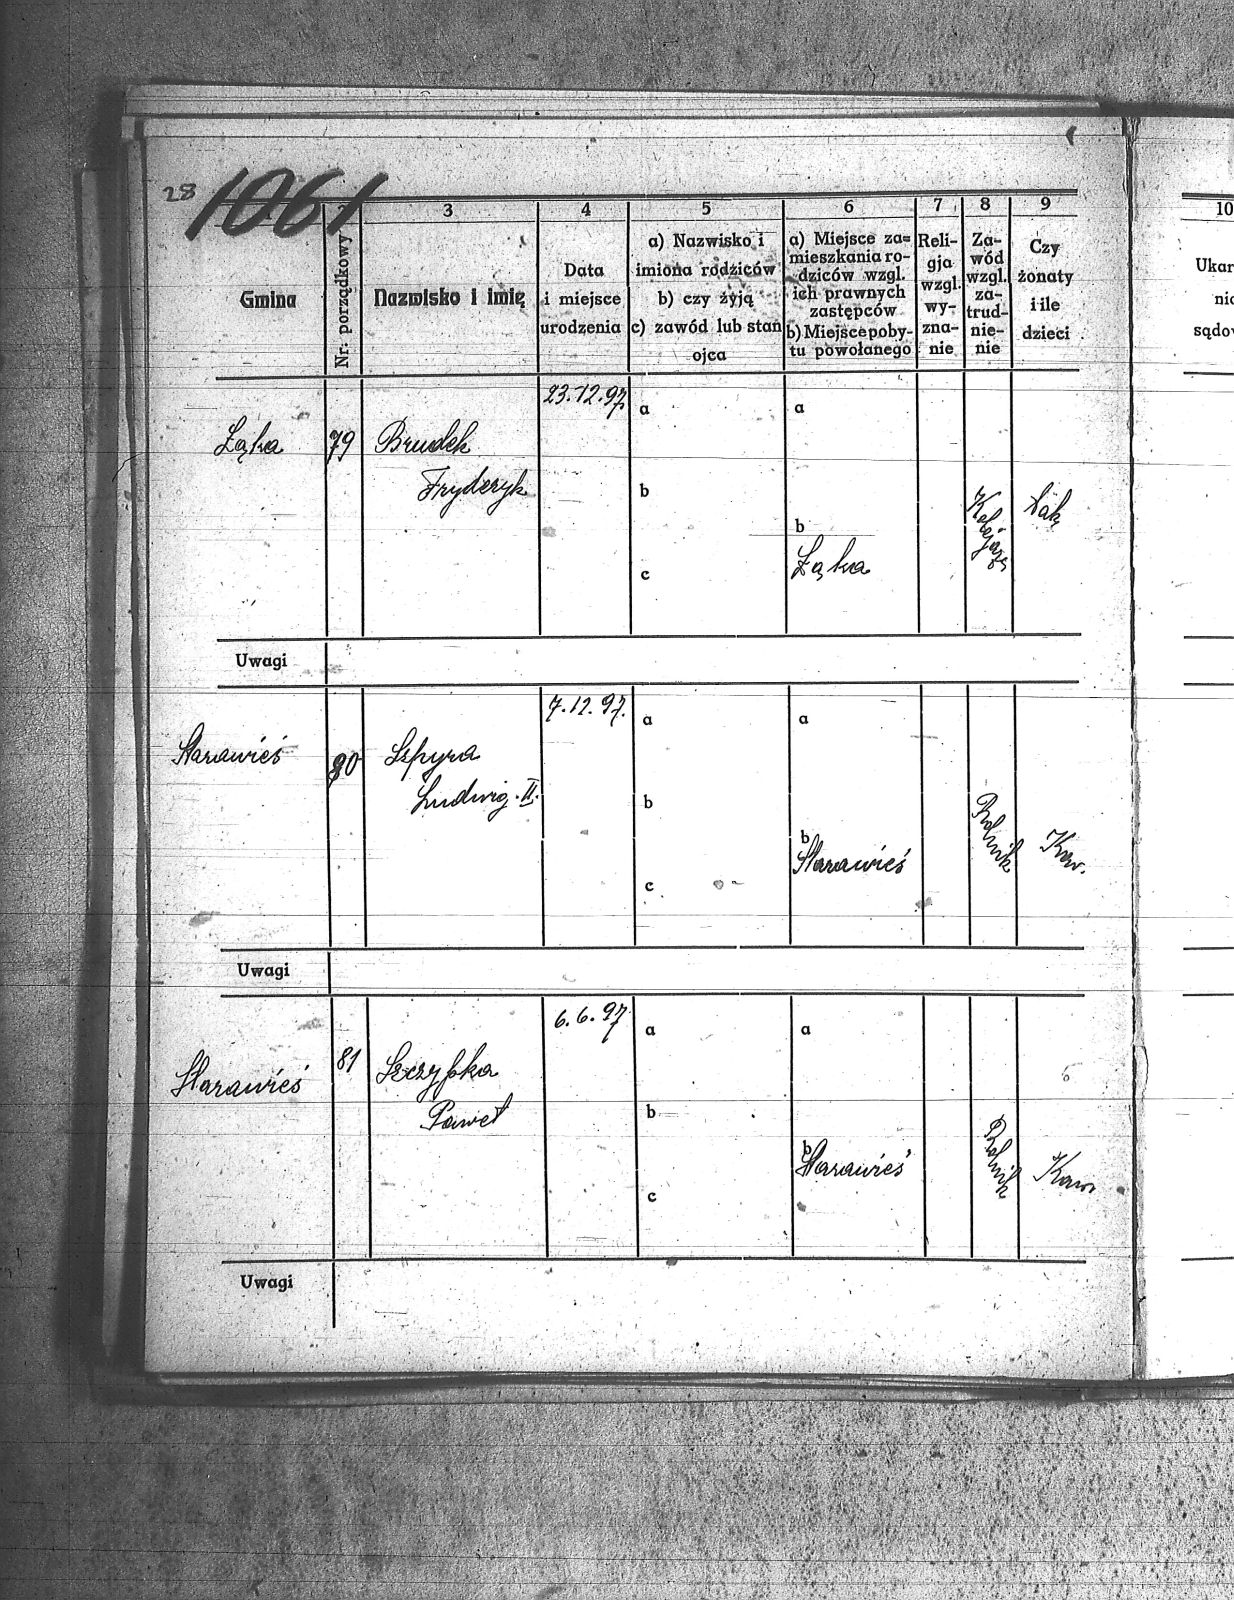 28 1061
2 3 4 5 6 7 8 9 10
Gmina
Nr. porządkowy
Nazwisko i imię
Data
i miejsce
urodzenia
a) Nazwisko i
imiona rodziców
b) czy żyją
c) zawód lub stan
ojca
a) Miejsce za=
mieszkania ro-
dziców wzgl.
ich prawnych
zastępców
b) Miejsce poby-
tu powołanego
Reli-
gja
wzgl.
wy-
zna-
nie
Za-
wód
wzgl.
za-
trud-
nie-
nie
Czy
żonaty
i ile
dzieci
Ukar
nio
sądow
Łąka
79
Brudek
Fryderyk
23.12.97
a
b
c
a
b
Łąka
Kolejarz
Uwagi
Starawieś
80
Szpyra
Ludwig. II.
7.12.97.
a
b
c
a
b
Starawieś
Rolnik
Kaw.
Uwagi
Starawieś
81
Szczypka
Paweł
6.6.97
a
b
c
a
b
Starawieś
Rolnik
Kaw.
Uwagi